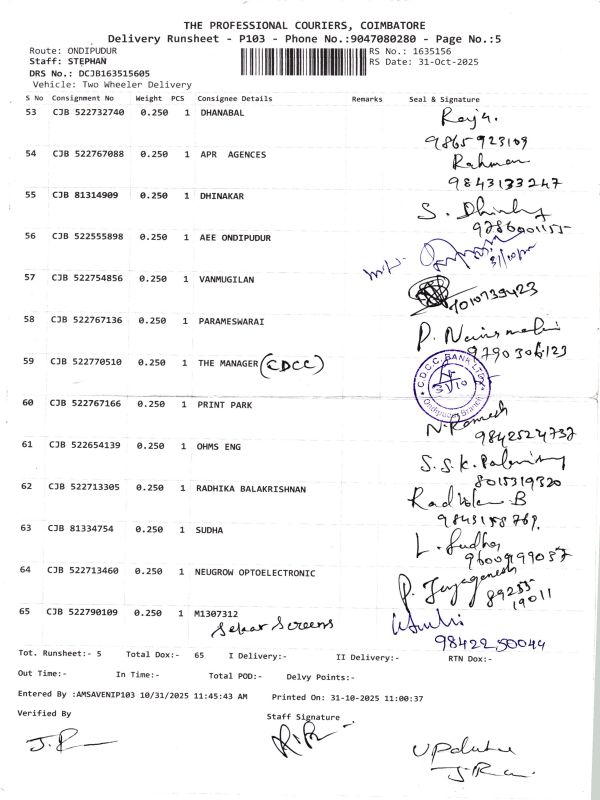 THE PROFESSIONAL COURIERS, COIMBATORE
Delivery Runsheet - P103 - Phone No.:9047080280 - Page No.:5
Route: ONDIPUDUR RS No.: 1635156
Staff: STEPHAN RS Date: 31-Oct-2025
DRS No.: DCJB163515605
Vehicle: Two Wheeler Delivery
S No Consignment No Weight PCS Consignee Details Remarks Seal & Signature
53 CJB 522732740 0.250 1 DHANABAL
9865923109
54 CJB 522767088 0.250 1 APR AGENCES Rahman
9843133247
55 CJB 81314909 0.250 1 DHINAKAR S.
56 CJB 522555898 0.250 1 AEE ONDIPUDUR
57 CJB 522754856 0.250 1 VANMUGILAN
58 CJB 522767136 0.250 1 PARAMESWARAI P.
59 CJB 522770510 0.250 1 THE MANAGER (CDCC) C.D.C.C. BANK LTD. Ondipudur Branch
60 CJB 522767166 0.250 1 PRINT PARK N. Ramesh
9842524737
61 CJB 522654139 0.250 1 OHMS ENG S.S.K.
8015319320
62 CJB 522713305 0.250 1 RADHIKA BALAKRISHNAN
9843158769.
63 CJB 81334754 0.250 1 SUDHA L. Sudha
9600999037
64 CJB 522713460 0.250 1 NEUGROW OPTOELECTRONIC P. Jayaganesh
89255
19011
65 CJB 522790109 0.250 1 M1307312
Sekar Screens
9842250044
Tot. Runsheet:- 5 Total Dox:- 65 I Delivery:- II Delivery:- RTN Dox:-
Out Time:- In Time:- Total POD:- Delvy Points:-
Entered By :AMSAVENIP103 10/31/2025 11:45:43 AM Printed On: 31-10-2025 11:00:37
Verified By Staff Signature